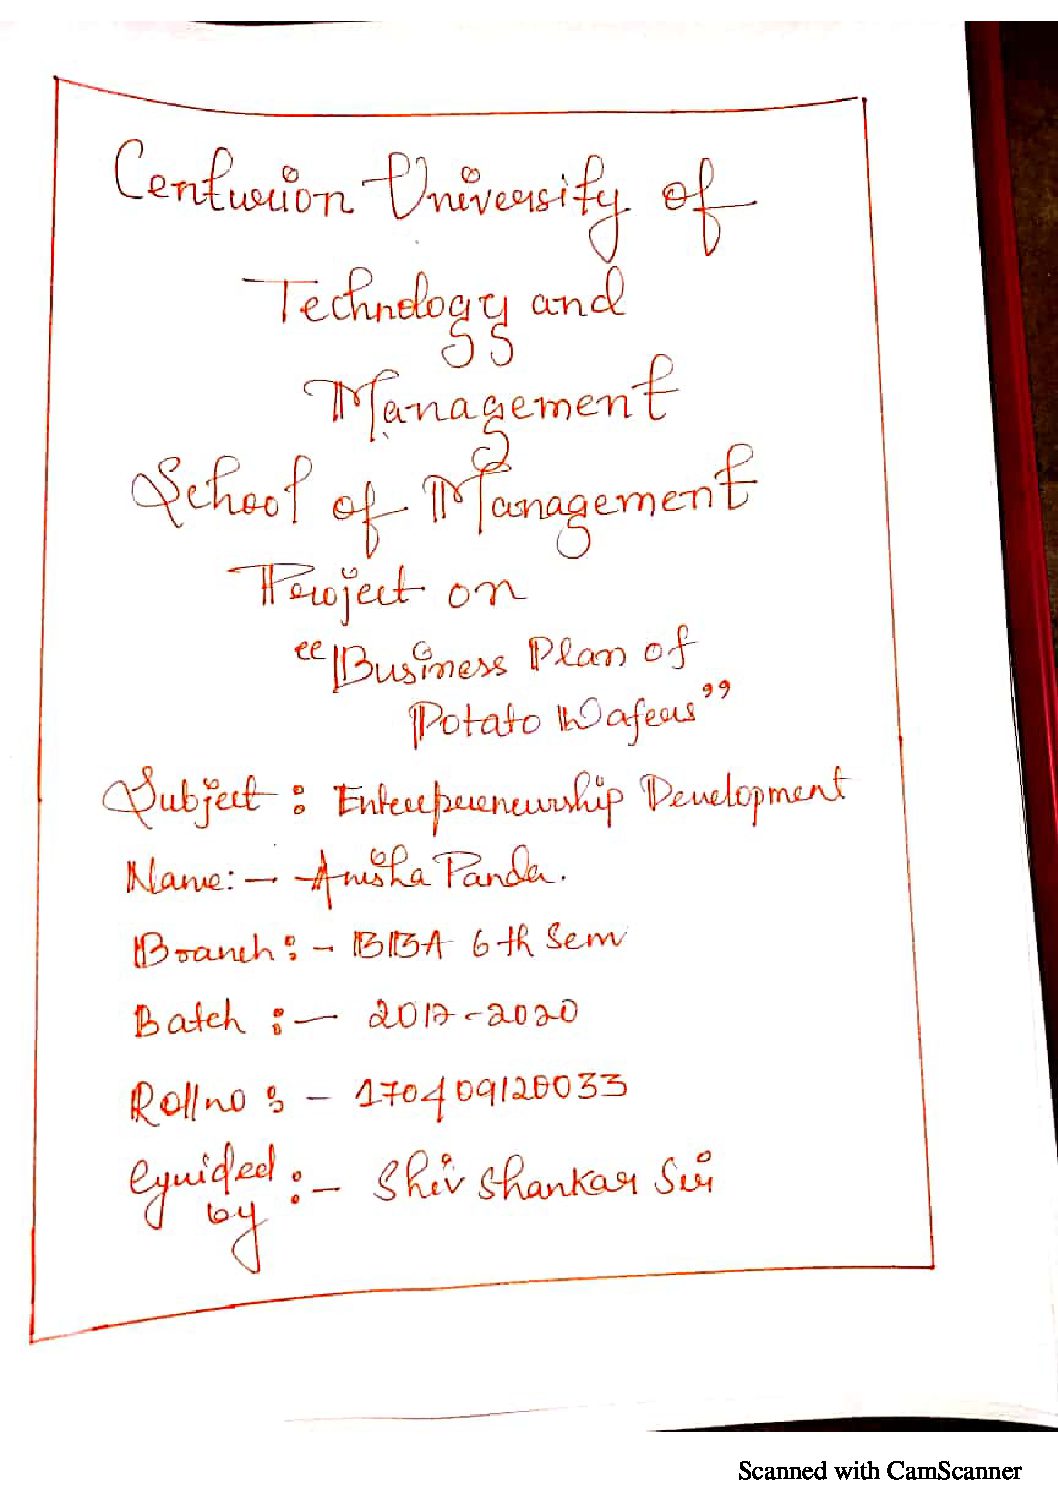 Centurion University of
Technology and
Management
School of Management
Project on
"Business Plan of
Potato Wafers"
Subject : Entrepreneurship Development
Name:- Anisha Panda.
Branch:- BBA 6th Sem
Batch :- 2017-2020
Rollno :- 170409120033
Guided by :- Shiv Shankar Sir
Scanned with CamScanner